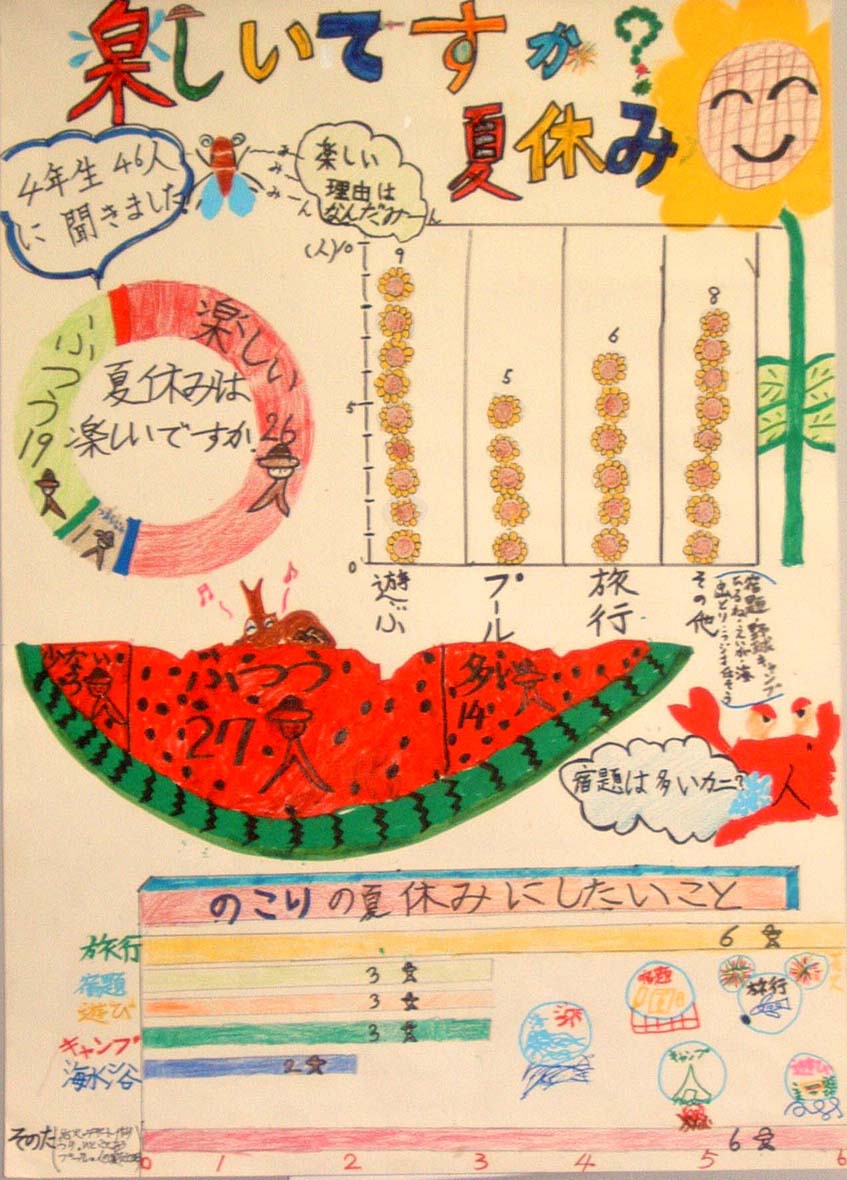 楽しいですか?
夏休み
4年生 46人
に 聞きました。
みーん
みーん
みーん
楽しい
理由は
なんだみーん
夏休みは
楽しいですか。
楽しい
26人
ふつう
19人
1人
(人)
10
5
0
9
5
6
8
遊ぶ
プール
旅行
その他
少ない
ふつう
27人
多い
14人
宿題は多いカニ?
人
のこりの夏休みにしたいこと
旅行
6
宿題
3
遊び
3
キャンプ
3
海水浴
2
そのた
6
0 1 2 3 4 5 6
宿題
旅行
キャンプ
遊び